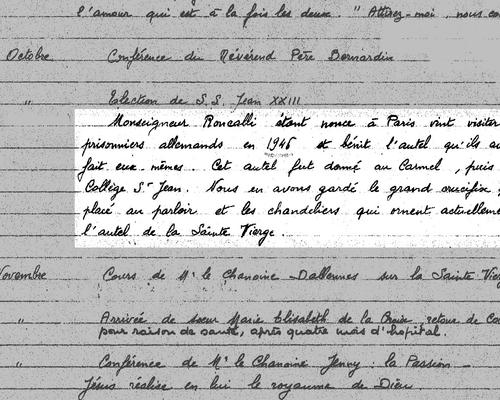 l'amour qui est à la fois les deux. " Attirez-moi, nous co
Octobre Conférence du Révérend Père Bernardin
" Election de S.S. Jean XXIII
Monseigneur Roncalli étant nonce à Paris vint visiter
prisonniers allemands en 1946 et bénit l'autel qu'ils av
fait eux-mêmes. Cet autel fut donné au Carmel, puis
Collège St Jean. Nous en avons gardé le grand crucifix,
placé au parloir et les chandeliers qui ornent actuelleme
l'autel de la Sainte Vierge.
Novembre Cours de Mr le Chanoine Dalbonnes sur la Sainte Vier
" Arrivée de soeur Marie Elisabeth de la Croix, retour de Co
pour raison de santé, après quatre mois d'hopital.
" Conférence de Mr le Chanoine Jenny : la Passion -
Jésus réalise en lui le royaume de Dieu.